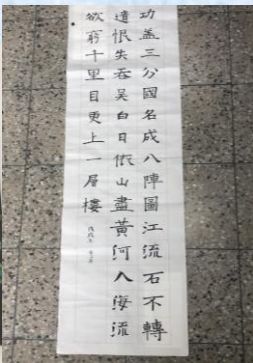 功盖三分國名成八陣圖江流石不轉
遺恨失吞吴白日依山盡黃河入海流
欲窮千里目更上一層樓